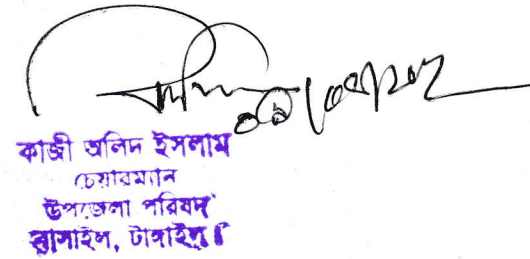 কাজী অলিদ ইসলাম
চেয়ারম্যান
উপজেলা পরিষদ
বাসাইল, টাঙ্গাইল।